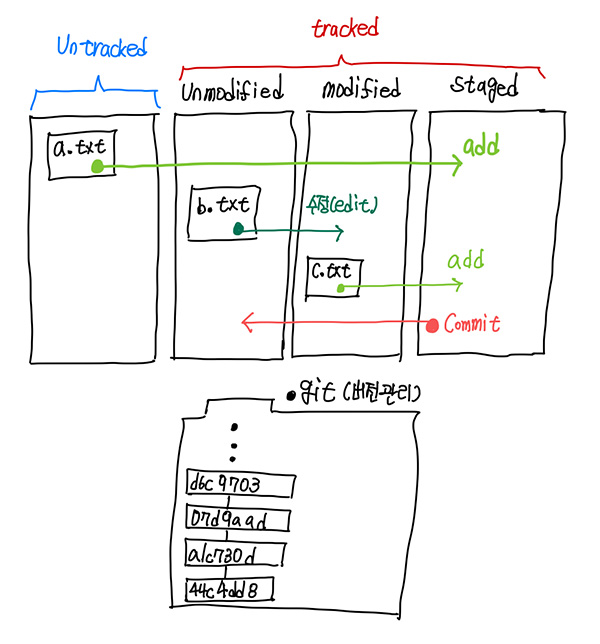 tracked
Untracked
Unmodified
modified
staged
a.txt
add
b.txt
수정(edit)
c.txt
add
Commit
.git (버전관리)
d6c9703
07d9aad
a1c730d
44c4dd8